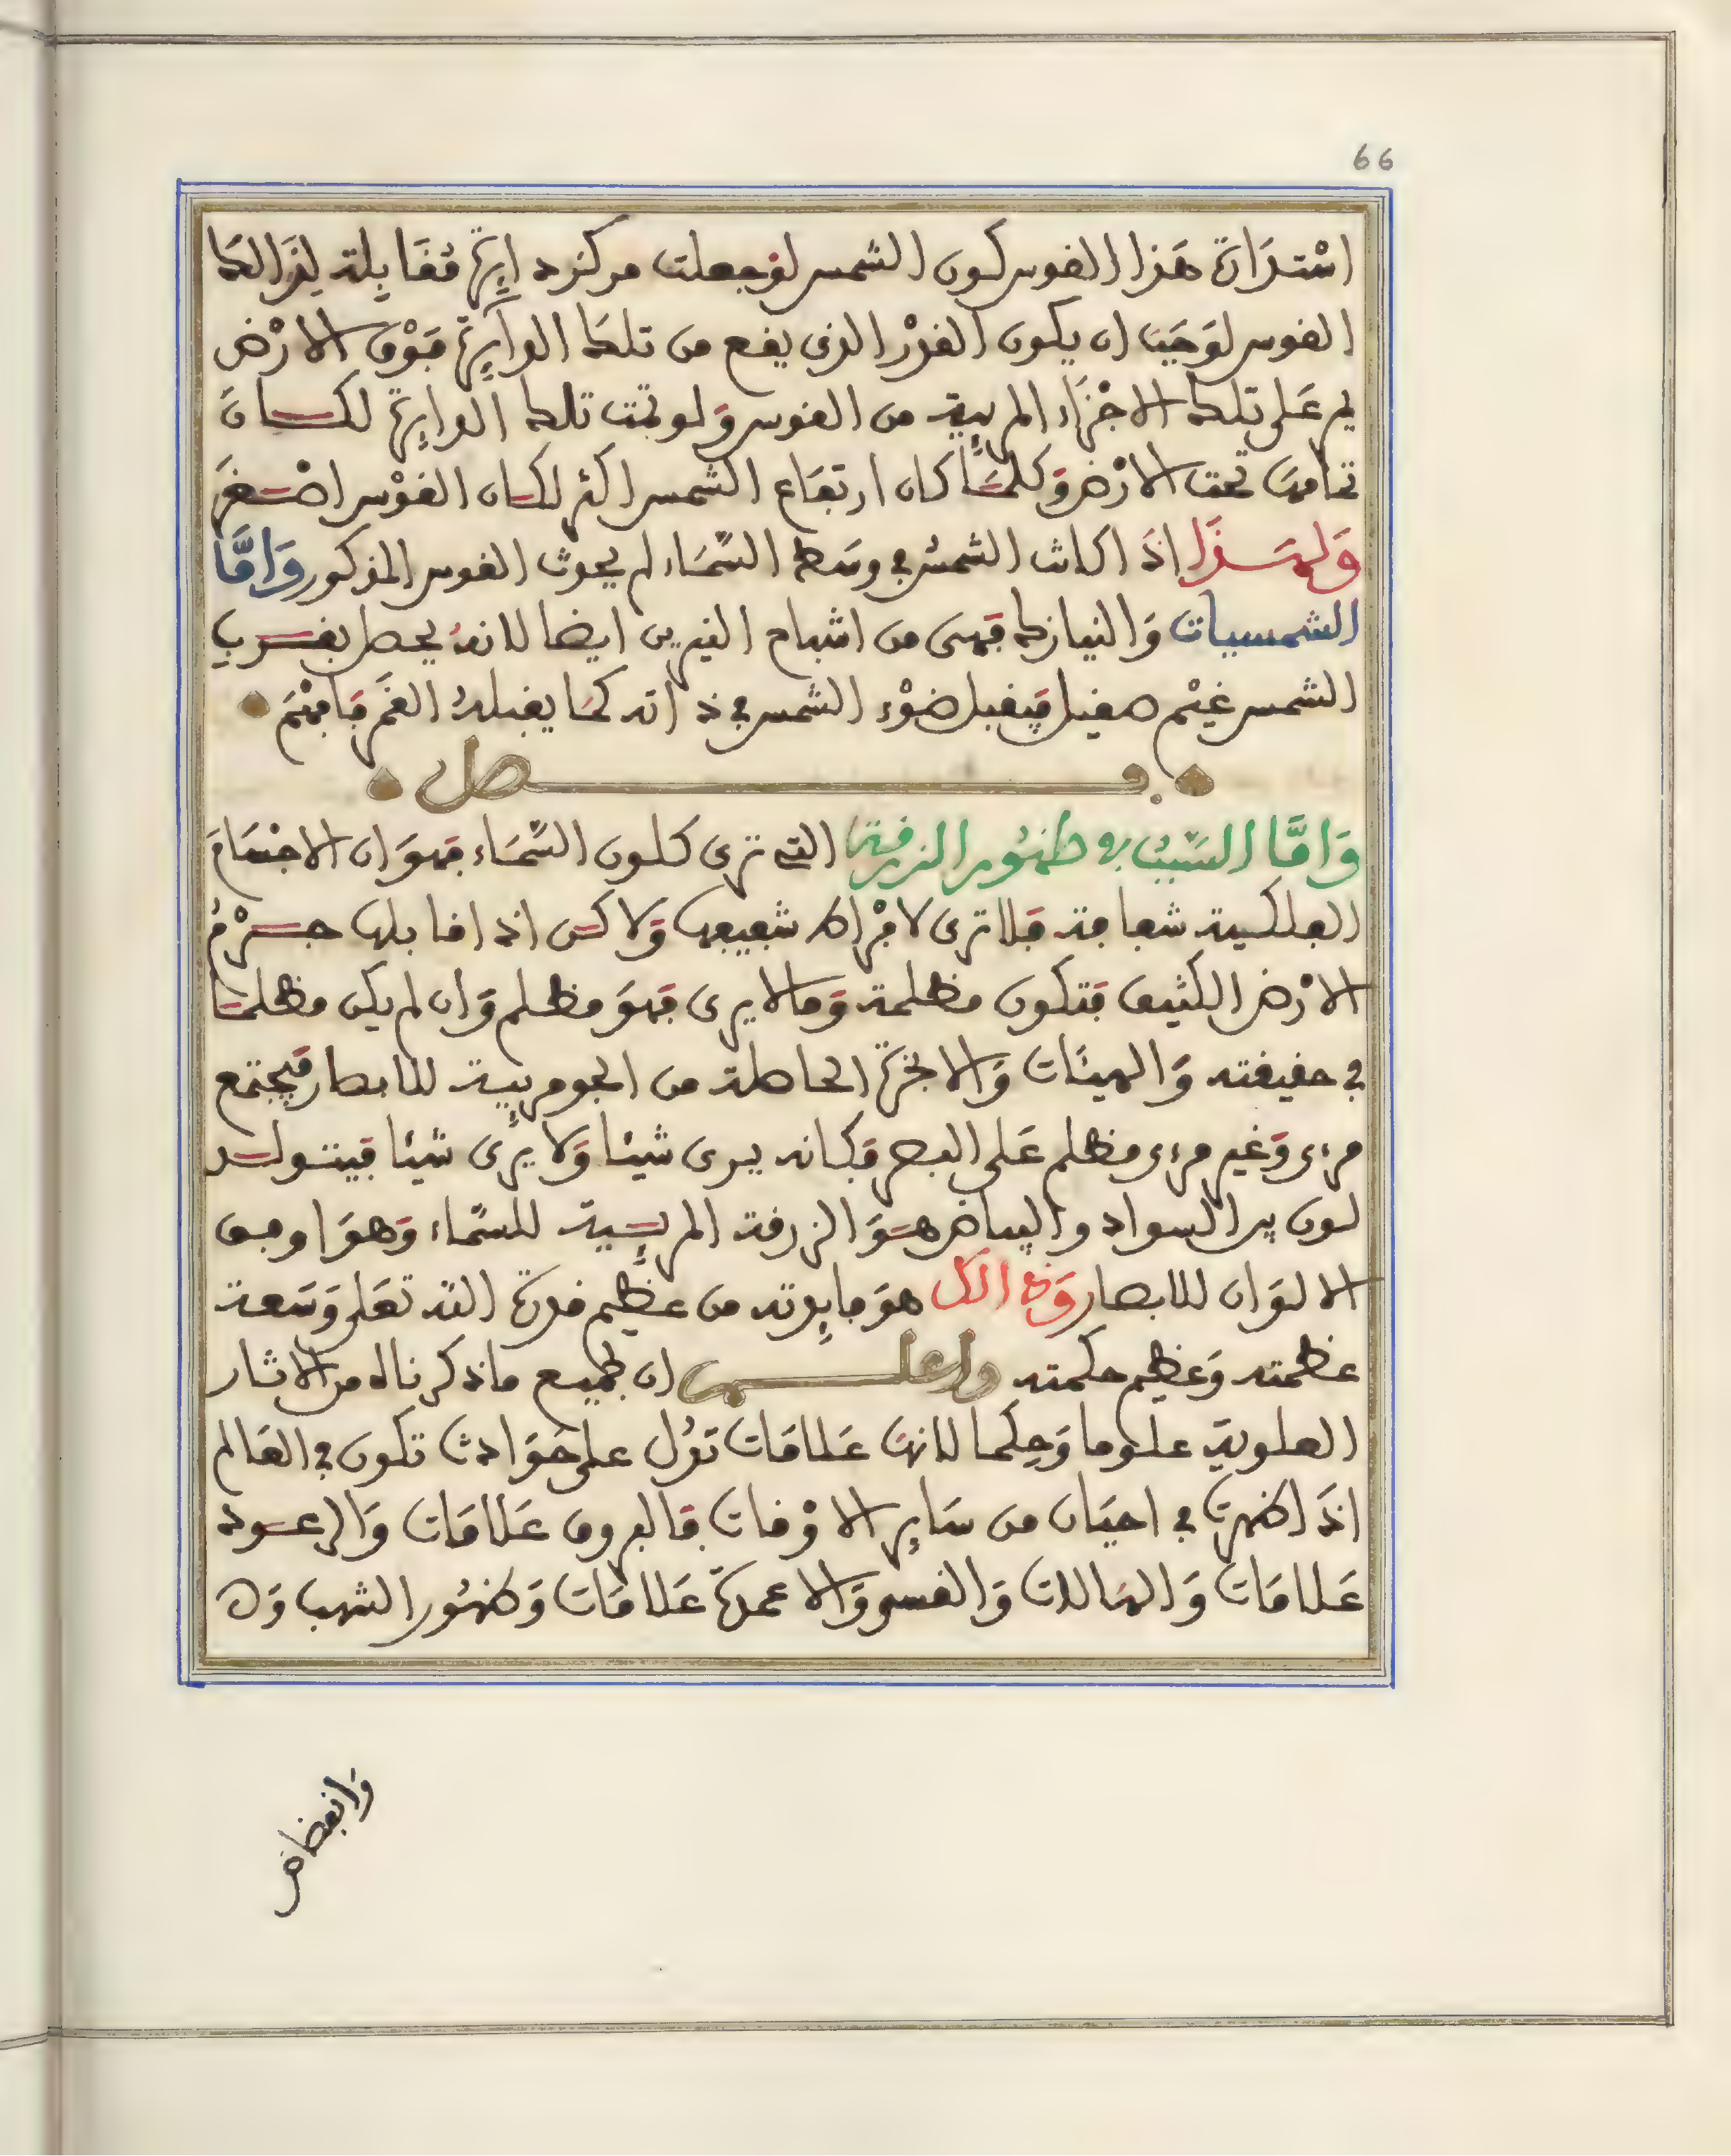 66
اسْتدَارَة هَذا القوس كون الشمس لوْ جعلت مركز دايِرَة مُقَابِلة لِذَالكَ
القوس لوَجَبَ ان يكون القدْر الذى يقع من تلكَ الدآيِرَة فَوْق الارْض
يمر عَلى تلكَ الاجْزَاء المرئِية من القوس وَلو تمت تلكَ الدايِرَة لكان
تمامهَا تحت الارْض وَكلمَا كان ارتفَاع الشمس اكثر لكان القوْس اصْغَرَ
وَلهَذَا اذَا كانت الشمسُ فى وسَط السَّمَاء لم يحدث القوس المذكور وَامَّا
الشمسيات وَالنيازك فَهى من اشباح النيرين ايضا لانهُ يحصل بقرب
الشمس غيْم صقيل فَيقبل ضَوْء الشمس فى ذاته كمَا يقبلهُ القمَر فَافهَمْ
فصل
وَامَّا السَّبَبُ فى ظهُور الزرقة التى ترى كلون السَّمَاء فَهوَ ان الاجسَامَ
الفلكية شفافة فَلا ترى لافْرَاط شفيفها وَلاكن اذا قابلها جرْمُ
الارْض الكثيف فتكون مظلمة وَمالا يرى فَهوَ مظلم وَان لم يكن مظلمَا
فى حقيقته وَالهبئَات وَالابخرَة الحاصلة من الجو مرئِية للابصار فَيجتمع
مرءى وَغير مرءى مظلم عَلى البصر فَكانه يرى شيئا وَلا يرَى شيئا فَيتولد
لون بين السواد والبياض هوَ الزرقة المرئِية للسمَّاء وَهوَ اوفق
الالوَان للابصار وَفى الكل هوَ مابِدته من عظيم قدرة الله تعَلى وَسَعة
عظمته وَعظيم حكمته واعلم ان لجميع ماذكرناه من الاثار
العلوية علوما وَحِكما لانهَا عَلامَات تدُل على حَوَادث تكون فى العَالم
اذَا ظهرت فى احيَان من سَايِر الاوْقات فَالبروق عَلامَات وَالرعود
عَلامَات وَالهَالات وَالقسى وَالاعمدة عَلامَات وَظهُور الشهب وَ
وَانقضاض